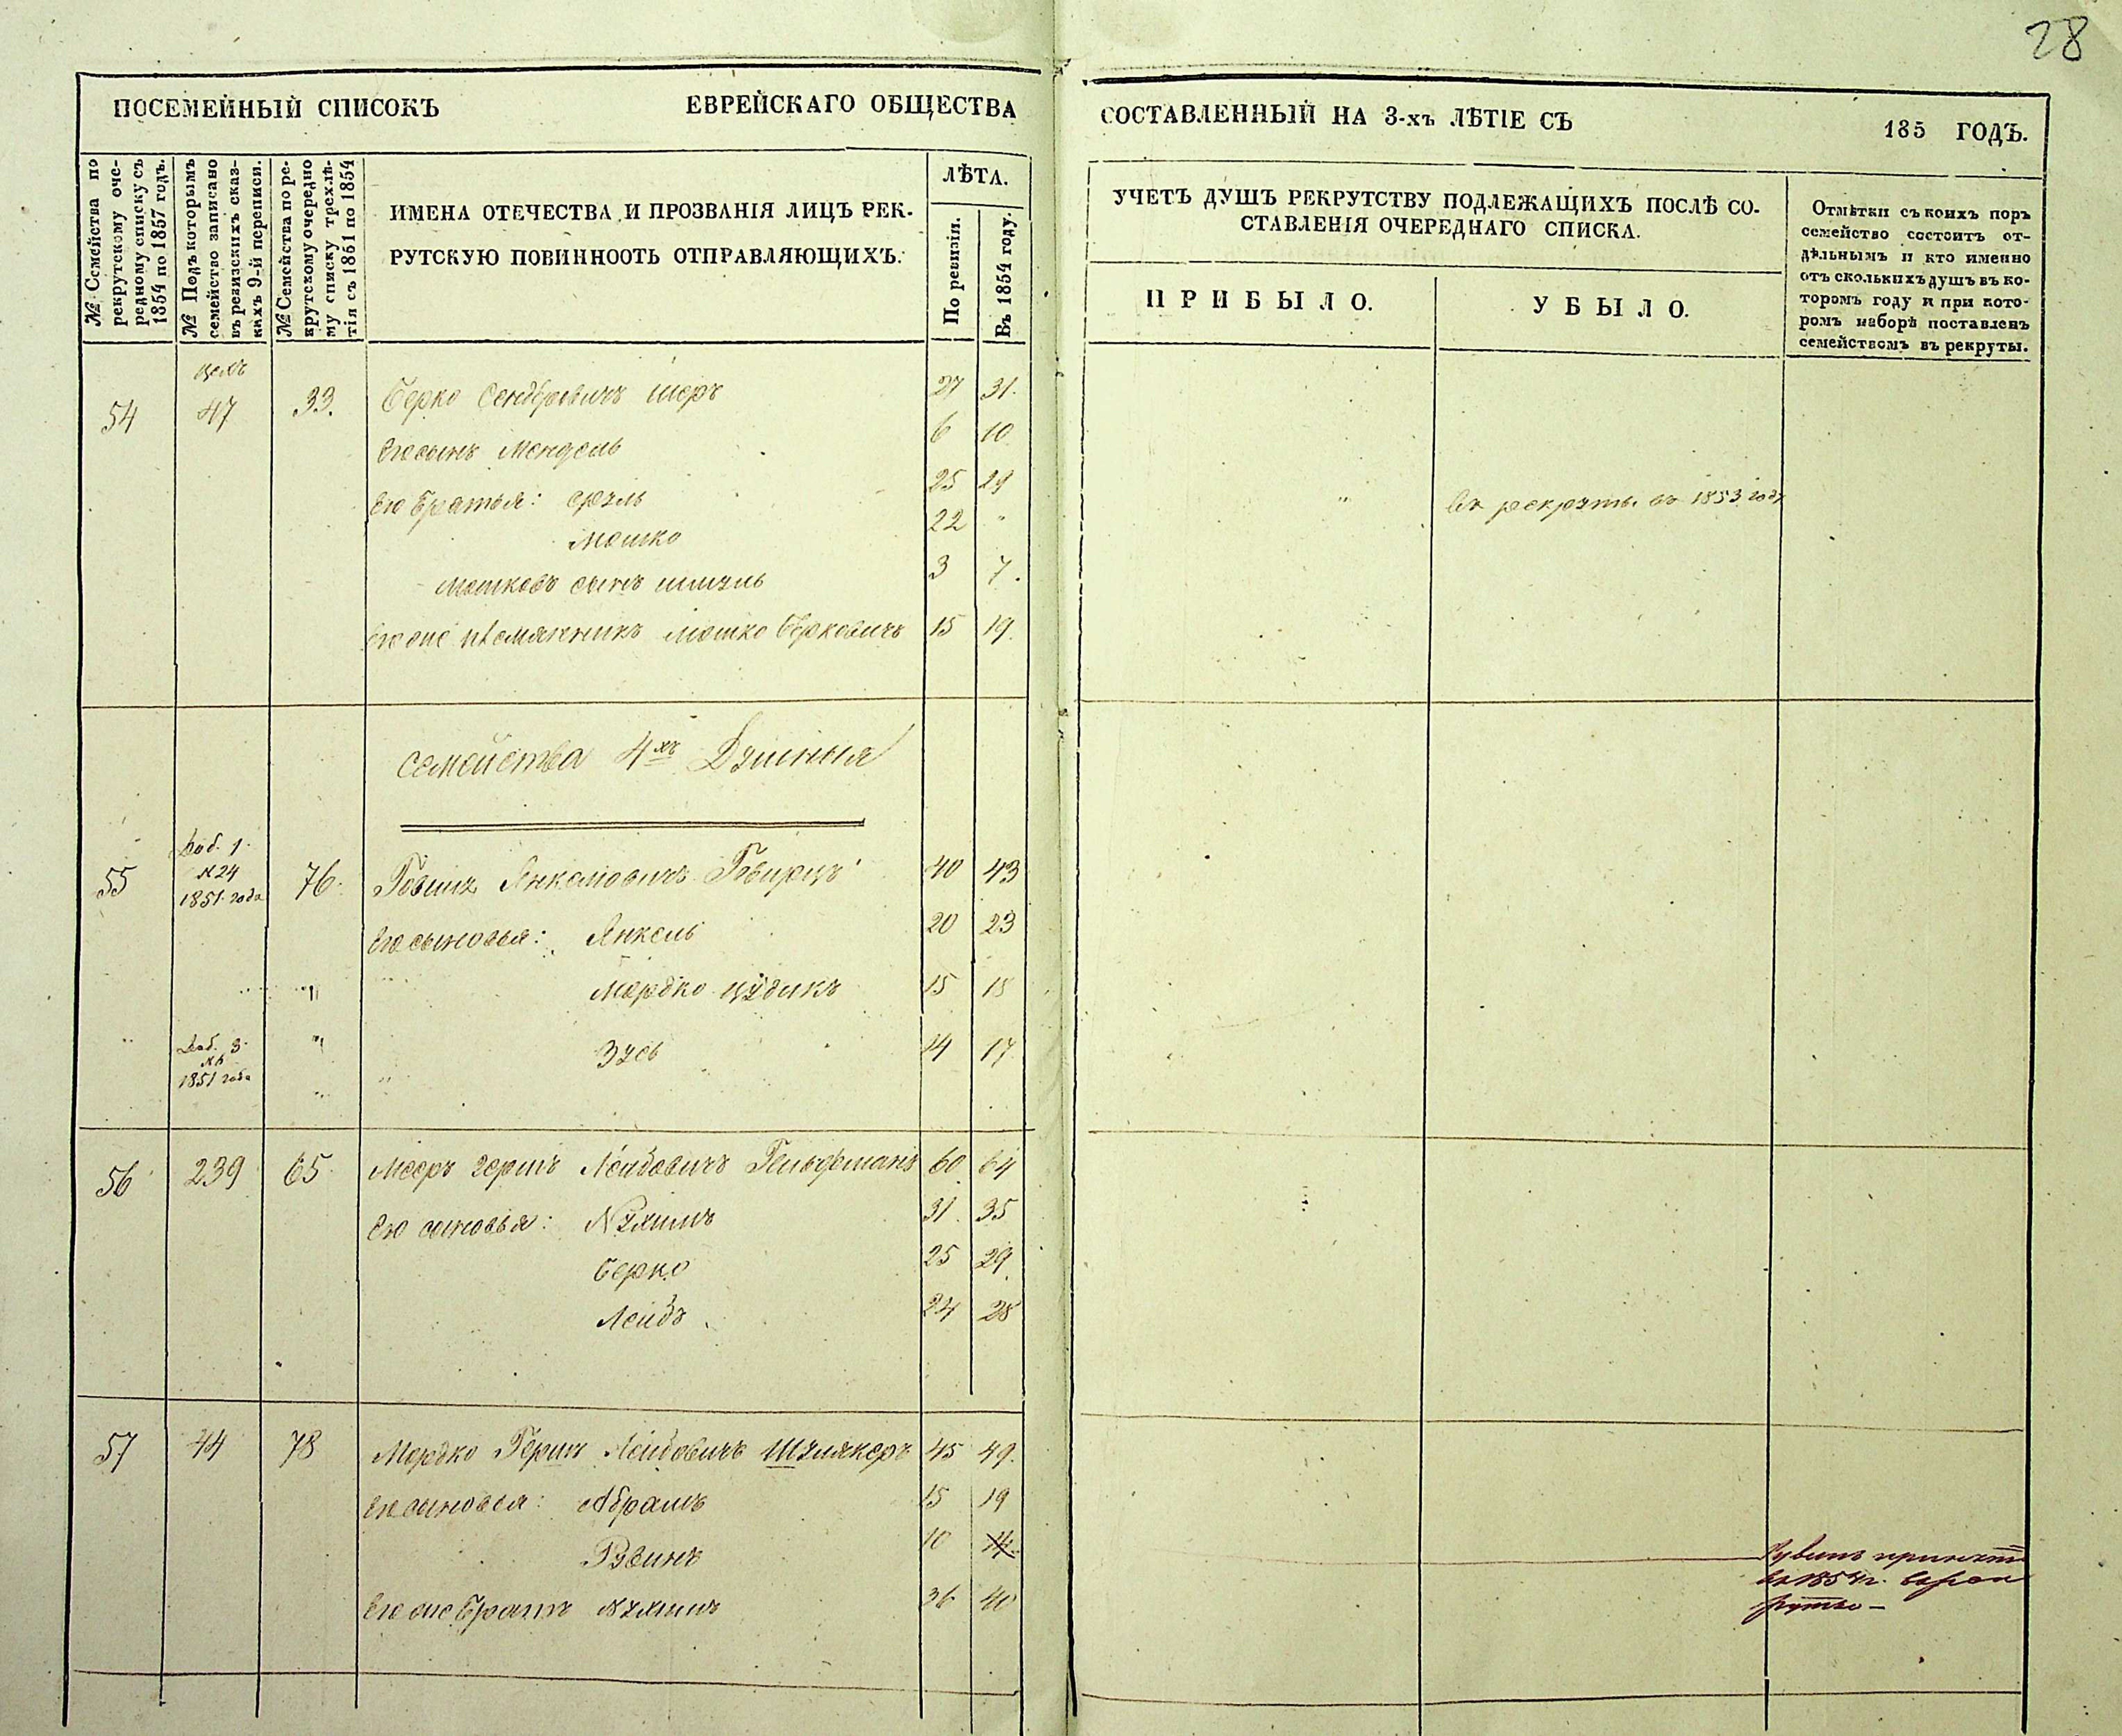 28
ПОСЕМЕЙНЫЙ СПИСОКЪ ЕВРЕЙСКАГО ОБЩЕСТВА
СОСТАВЛЕННЫЙ НА 3-хъ ЛѢТІЕ СЪ 185 ГОДЪ.
№ Семейства по
рекрутскому оче-
редному списку съ
1854 по 1857 годъ.
№ Подъ которымъ
семейство записано
въ ревизскихъ сказ-
кахъ 9-й переписи.
№ Семейства по ре-
крутскому очередно
му списку трехлѣ-
тія съ 1851 по 1854
ИМЕНА ОТЕЧЕСТВА И ПРОЗВАНІЯ ЛИЦЪ РЕК-
РУТСКУЮ ПОВИННООТЬ ОТПРАВЛЯЮЩИХЪ.
ЛѢТА.
По ревизіи.
Въ 1854 году.
УЧЕТЪ ДУШЪ РЕКРУТСТВУ ПОДЛЕЖАЩИХЪ ПОСЛѢ СО-
СТАВЛЕНІЯ ОЧЕРЕДНАГО СПИСКА.
ПРИБЫЛО.
УБЫЛО.
Отмѣтки съ коихъ поръ
семейство состоитъ от-
дѣльнымъ и кто именно
отъ сколькихъ душъ въ ко-
торомъ году и при кото-
ромъ наборѣ поставленъ
семействомъ въ рекруты.
54 47 33. Берко Сендеровичъ Шеръ 27 31.
Его сынъ Мендель 6 10
Его Братья: Сруль 25 29
Мошко 22 " " въ рекруты въ 1853 году
Мошковъ сынъ Шмуль 3 7.
Его же племянникъ Мошко Берковичъ 15 19.
Семейства 4хъ Душныя
Доб. 1.
№ 24
1851 года
55 76. Говшъ Янкелевичъ 40 43
Его сыновья: Янкель 20 23
Мордко Цудикъ 15 18
Доб. 3.
1851 года
Зусь 14 17
56 239 65 Мееръ Гершъ Лейбовичъ Гельфманъ 60 64
Его сыновья: Нухимъ 31 35
Берко 25 29
Лейбъ 24 28
57 44 78 Мордко Гершъ Лейбовичъ Шулякеръ 45 49.
Его сыновья: Абрамъ 15 19
Рувинъ 10 14
Его же Братъ Нухимъ 36 40
Рувинъ принятъ
въ 1854 г. въ рек
руты —